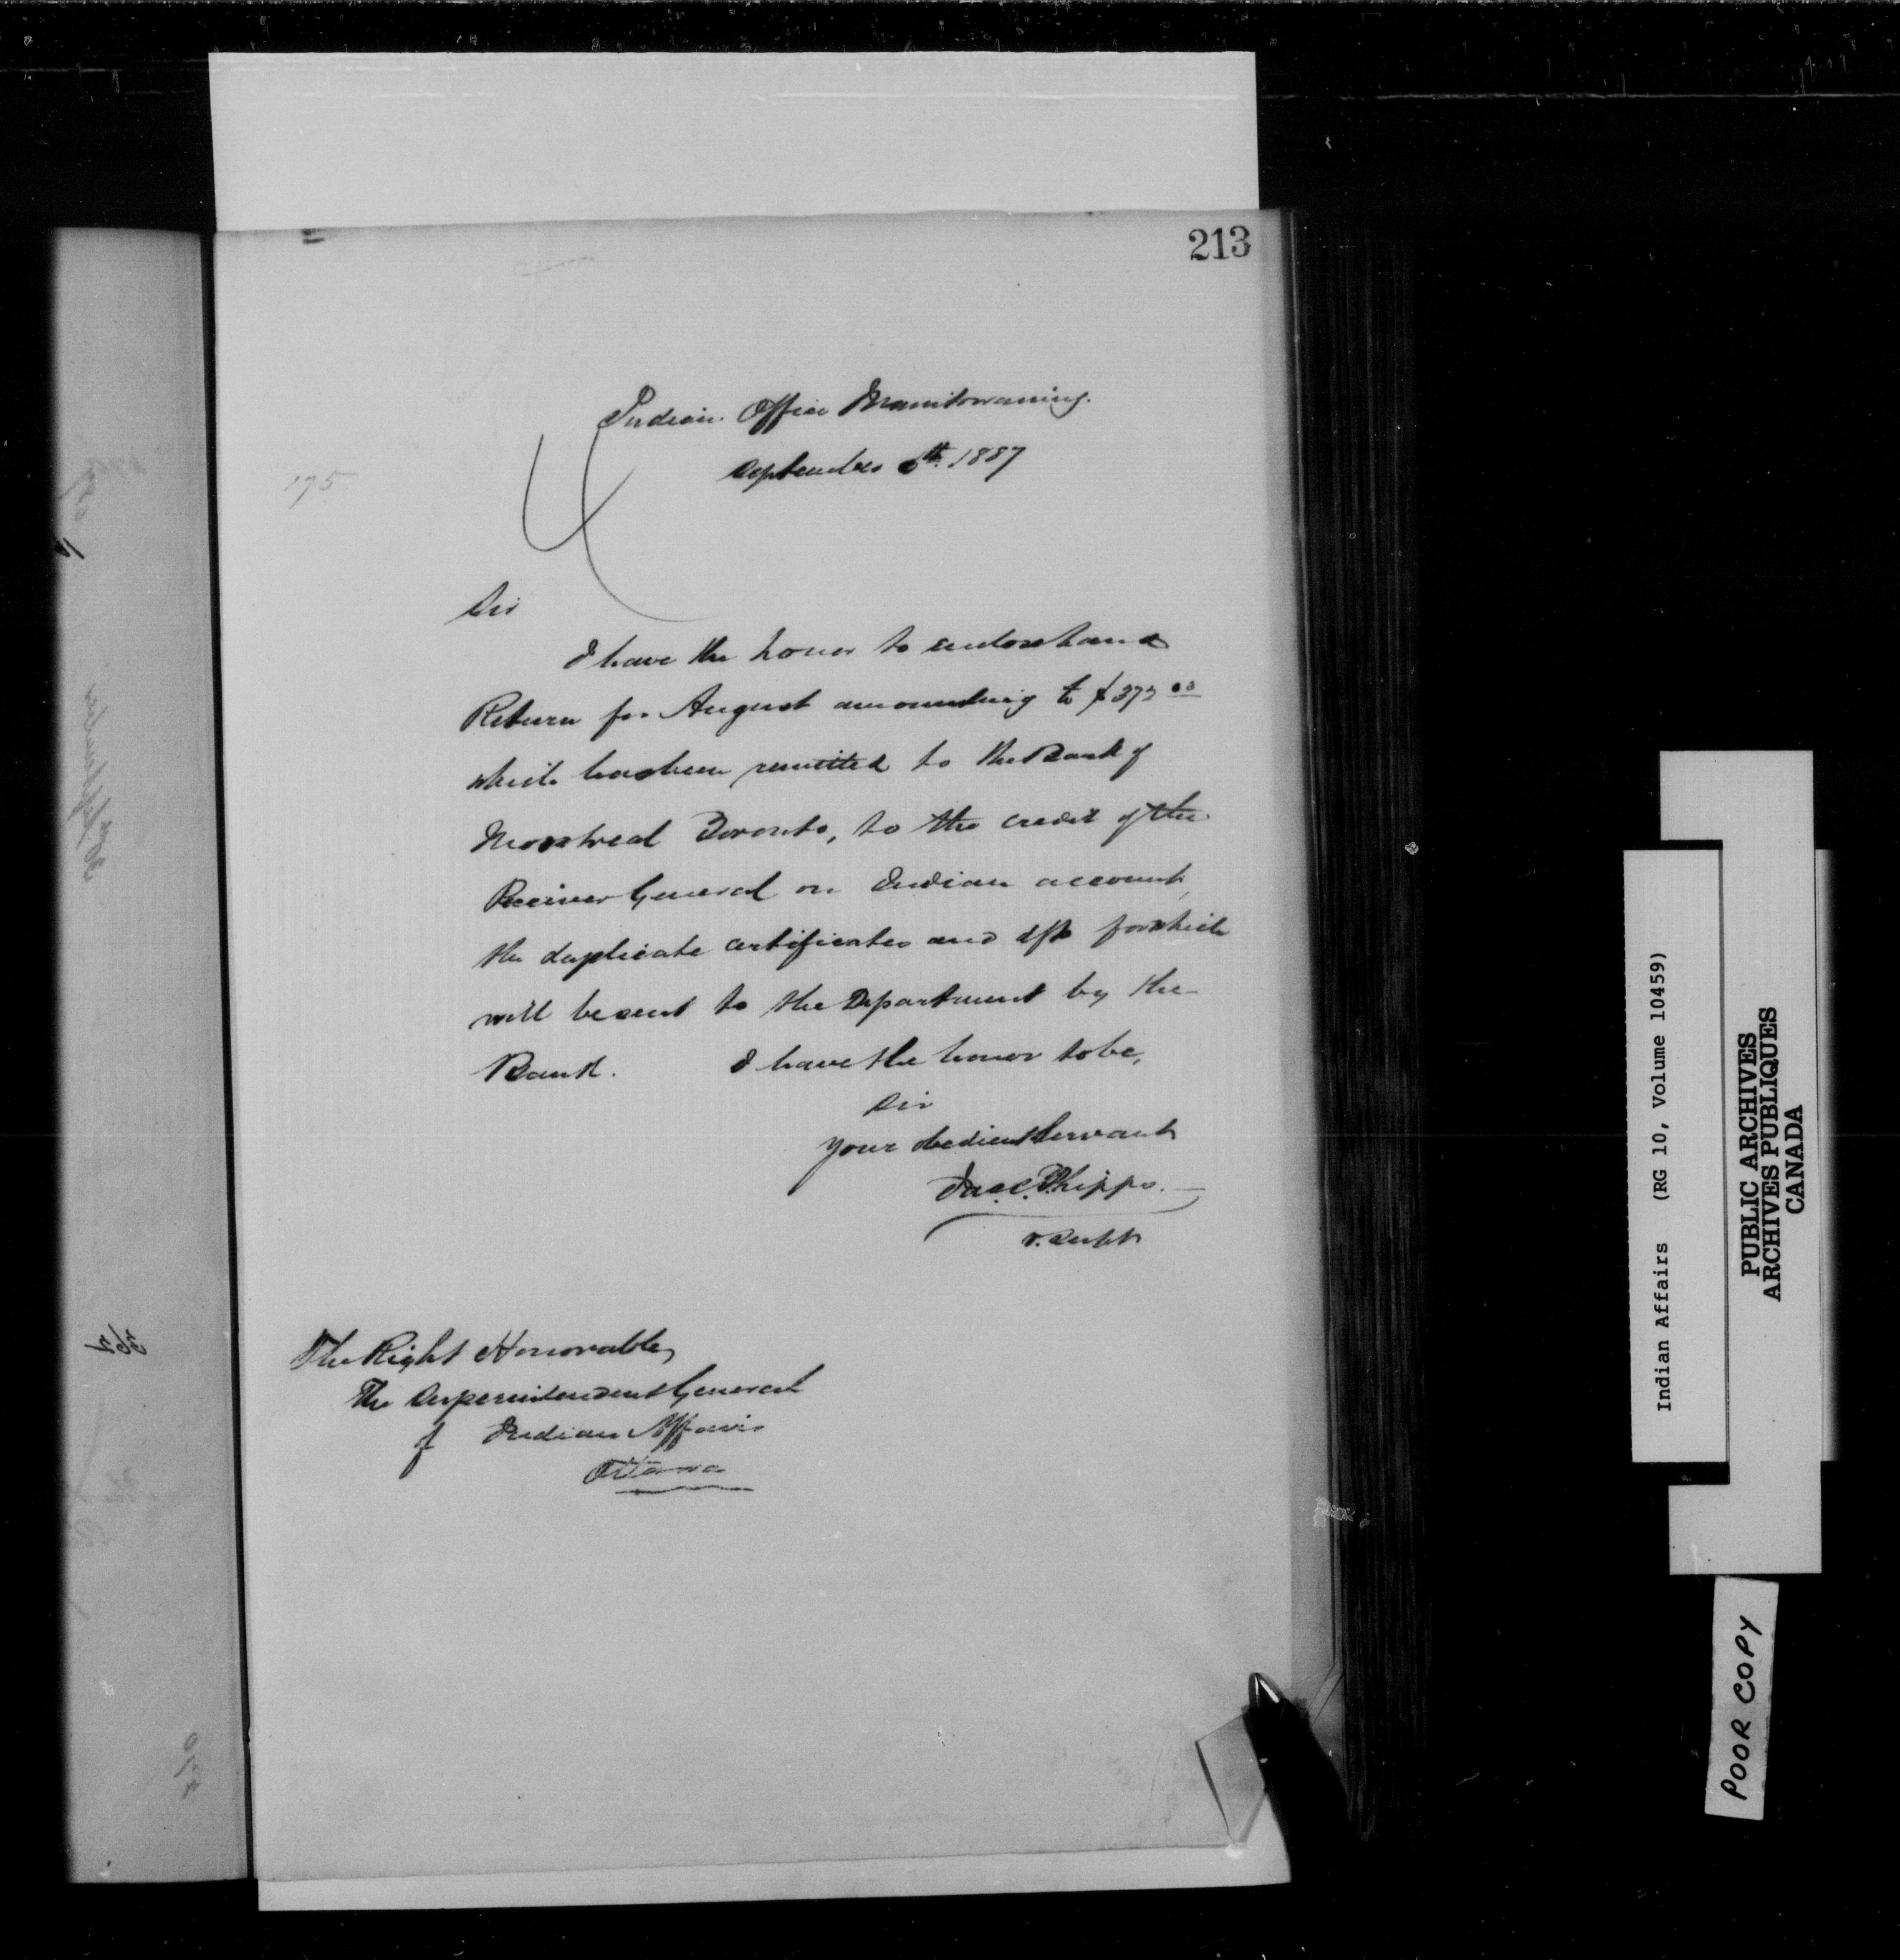 213
Indian Office Manitowaning.
September 6th. 1887
175
Sir
I have the honor to enclose Land
Return for August amounting to $373 00
which has been remitted to the Bank of
Montreal Toronto, to the credit of the
Receiver General on Indian account,
the duplicate certificates and dfts for which
will be sent to the Department by the
Bank. I have the honor to be,
Sir
Your obedient Servant
Jas. C. Phipps.
V. Supt
The Right Honorable,
The Superintendent General
of Indian Affairs
Ottawa
Indian Affairs (RG 10, Volume 10459)
PUBLIC ARCHIVES
ARCHIVES PUBLIQUES
CANADA
POOR COPY